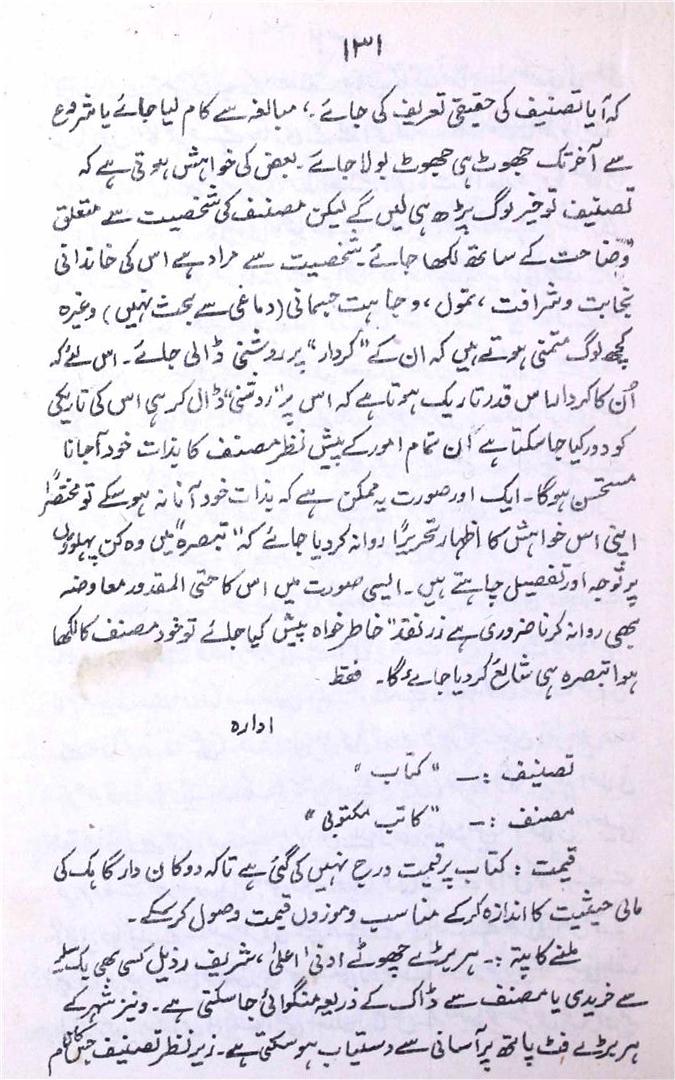 ۱۳۱
کہ آیا تصنیف کی حقیقی تعریف کی جائے، مبالغہ سے کام لیا جائے یا شروع
سے آخر تک جھوٹ ہی جھوٹ بولا جائے۔ بعض کی خواہش ہوتی ہے کہ
تصنیف تو خیر لوگ پڑھ ہی لیں گے لیکن مصنف کی شخصیت سے متعلق
وضاحت کے ساتھ لکھا جائے شخصیت سے مراد ہے اس کی خاندانی
نجابت و شرافت، تمول، وجاہت جسمانی (دماغی سے بحث نہیں) وغیرہ
کچھ لوگ متمنی ہوتے ہیں کہ ان کے "کردار" پر روشنی ڈالی جائے۔ اس لئے کہ
اُن کا کردار اس قدر تاریک ہوتا ہے کہ اس پر "روشنی" ڈال کر ہی اس کی تاریکی
کو دور کیا جا سکتا ہے ان تمام امور کے پیش نظر مصنف کا بذات خود آجانا
مستحسن ہو گا۔ ایک اور صورت یہ ممکن ہے کہ بذات خود آنا نہ ہو سکے تو مختصراً
اپنی اس خواہش کا اظہار تحریراً روانہ کر دیا جائے کہ "تبصرہ" میں وہ کن پہلوؤں
پر توجہ اور تفصیل چاہتے ہیں۔ ایسی صورت میں اس کا حتی المقدور معاوضہ
بھی روانہ کرنا ضروری ہے زر نقد" خاطر خواہ پیش کیا جائے تو خود مصنف کا لکھا
ہوا تبصرہ ہی شائع کر دیا جائے گا۔ فقط
ادارہ
تصنیف :۔ "کتاب"
مصنف :۔ "کاتب مکتوبی"
قیمت : کتاب پر قیمت درج نہیں کی گئی ہے تاکہ دوکان دار گاہک کی
مالی حیثیت کا اندازہ کر کے مناسب و موزوں قیمت وصول کر سکے۔
ملنے کا پتہ :۔ ہر بڑے چھوٹے ادنیٰ اعلیٰ، شریف رذیل کسی بھی بک سیلر
سے خریدی یا مصنف سے ڈاک کے ذریعہ منگوائی جا سکتی ہے۔ و نیز شہر کے
ہر بڑے فٹ پاتھ پر آسانی سے دستیاب ہو سکتی ہے۔ زیر نظر تصنیف جس کا نام